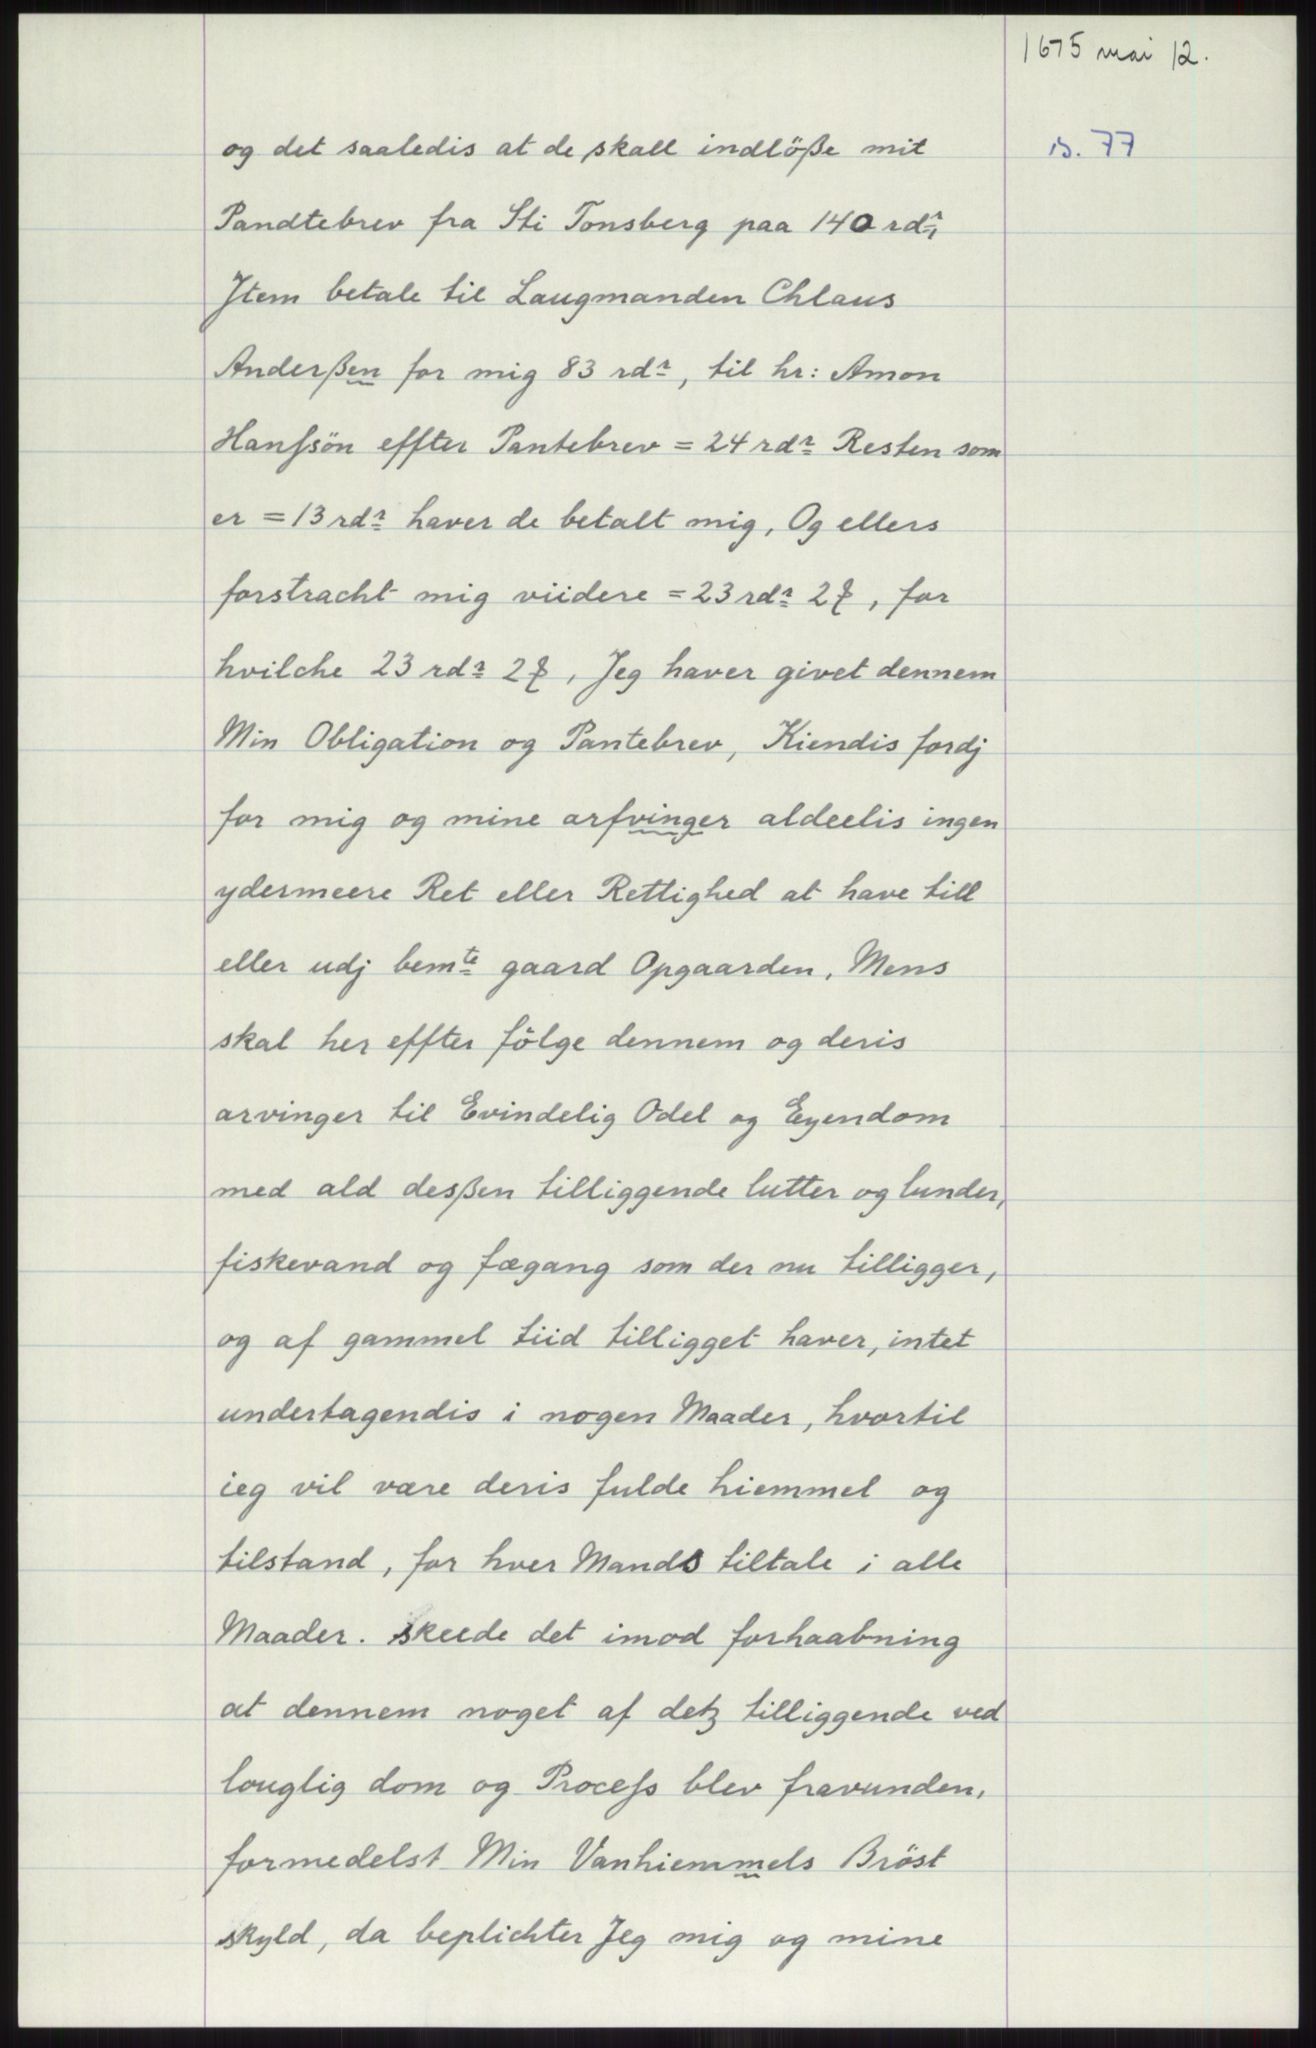 1675 mai 12.
s. 77
og det saaledis at de skall indlöße mit
Pandtebrev fra Sti Tonsberg paa 140 rdr,
Jtem betale til Laugmanden Chlaus
Anderßen for mig 83 rdr, til hr: Amon
Hanſsön effter Pantebrev = 24 rdr Resten som
er = 13 rdr haver de betalt mig, Og ellers
forstracht mig viidere = 23 rdr 2 , for
hvilche 23 rdr 2 , Jeg haver givet dennem
Min Obligation og Pantebrev, Kiendis fordj
for mig og mine arfvinger aldeelis ingen
ydermeere Ret eller Rettighed at have till
eller udj bemte gaard Opgaarden, Mens
skal her effter fölge dennem og deris
arvinger til Evindelig Odel og Eyendom
med ald desßen tilliggende lutter og lunder,
fiskevand og fægang som der nu tilligger,
og af gammel tiid tilligget haver, intet
undertagendis i nogen Maader, hvortil
ieg vil være deris fulde hiemmel og
tilstand, for hver Mands tiltale i alle
Maader. skeede det imod forhaabning
at dennem noget af detz tilliggende ved
louglig dom og Proceſs blev fravunden,
formedelst Min Vanhiemmels Bröst
skyld, da beplichter Jeg mig og mine